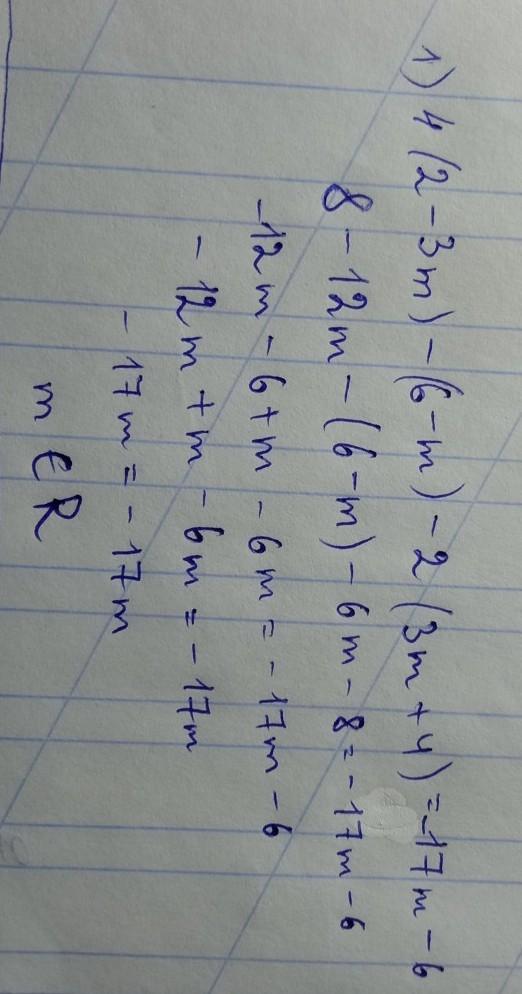 1) 4(2-3m)-(6-m)-2(3m+4)=-17m-6
8-12m-(6-m)-6m-8=-17m-6
-12m-6+m-6m=-17m-6
-12m+m-6m=-17m
-17m=-17m
m∈R